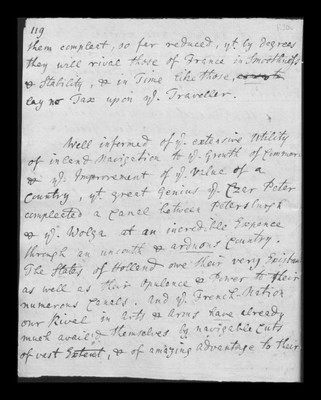 119
them compleat, so far reduced, yt. by degrees
they will rival those of France in Smoothness
& Stability, & in Time like those,
lay no Tax upon ye. Traveller.
Well informed of ye. extensive Utility
of inland Navigation to ye. Growth of Commerce
& ye. Improvement of ye. Value of a
Country, yt. great Genius ye. Czar Peter
compleated a Canal between Petersburgh
& ye. Wolga at an incredible Expence
through an uncouth & arduous Country.
The States of Holland owe their very Existence
as well as their Opulence & Power to their
numerous Canals. And ye. French Nation
our Rival in Arts & Arms have already
much avail'd themselves by navigable Cuts
of vast Extent, & of amazing advantage to their